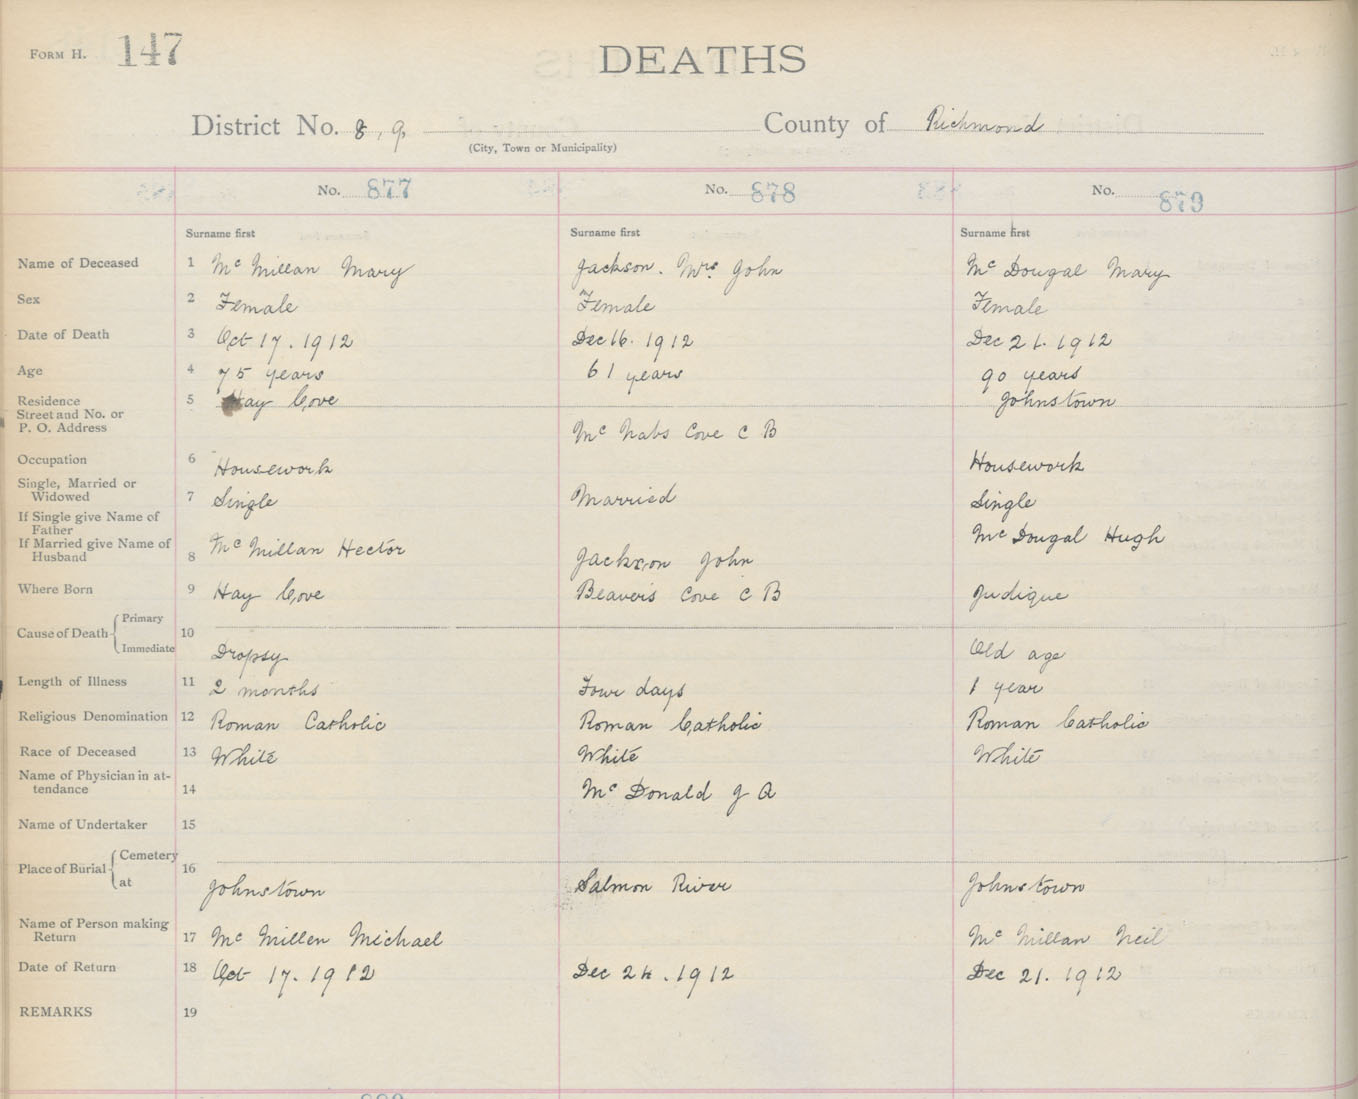 FORM H. 147
DEATHS
District No. 8, 9, County of Richmond
(City, Town or Municipality)
No. 877 No. 878 No. 879
Surname first Surname first Surname first
Name of Deceased 1 Mc Millan Mary Jackson. Mrs. John Mc Dougal Mary
Sex 2 Female Female Female
Date of Death 3 Oct 17. 1912 Dec 16. 1912 Dec 21. 1912
Age 4 75 years 61 years 90 years
Residence 5 Hay Cove Johnstown
Street and No. or
P. O. Address Mc Nabs Cove C B
Occupation 6 Housework Housework
Single, Married or
Widowed 7 Single Married Single
If Single give Name of
Father Mc Dougal Hugh
If Married give Name of
Husband 8 Mc Millan Hector Jackson John
Where Born 9 Hay Cove Beavers Cove C B Judique
Cause of Death { Primary 10
Immediate Dropsy Old age
Length of Illness 11 2 months Four days 1 year
Religious Denomination 12 Roman Catholic Roman Catholic Roman Catholic
Race of Deceased 13 White White White
Name of Physician in at-
tendance 14 Mc Donald J A
Name of Undertaker 15
Place of Burial { Cemetery 16
at Johnstown Salmon River Johnstown
Name of Person making
Return 17 Mc Millen Michael Mc Millan Neil
Date of Return 18 Oct 17. 1912 Dec 24. 1912 Dec 21. 1912
REMARKS 19